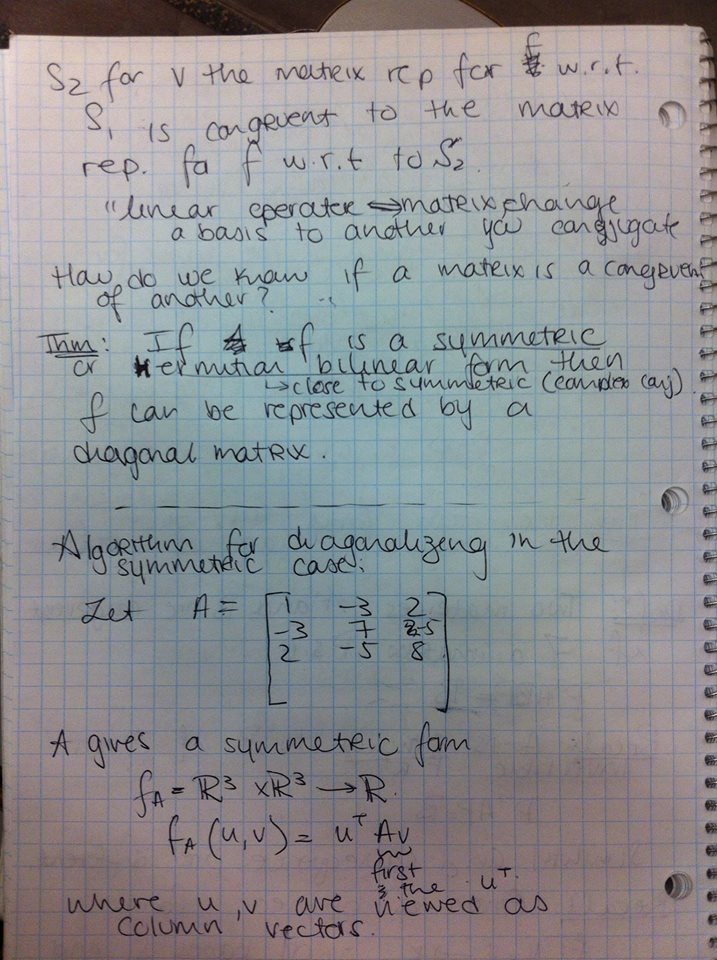 S2 for V the matrix rep for f w.r.t.
S1 is congruent to the matrix
rep. fa f w.r.t to S2.
"linear operator ⟺ matrix, change
a basis to another you conjugate
How do we know if a matrix is a congruent
of another?
Thm: If f is a symmetric
or Hermitian bilinear form then
↳ close to symmetric (complex conj)
f can be represented by a
diagonal matrix.
Algorithm for diagonalizing in the
symmetric case:
Let A = [1 -3 2
-3 7 -5
2 -5 8]
A gives a symmetric form
fA = R³ × R³ → R.
fA (u, v) = uᵀ Av
first
& the uᵀ
where u, v are viewed as
column vectors.